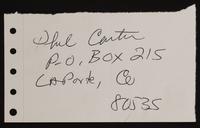 Phil Carter
P.O. BOX 215
LaPorte, Co
80535